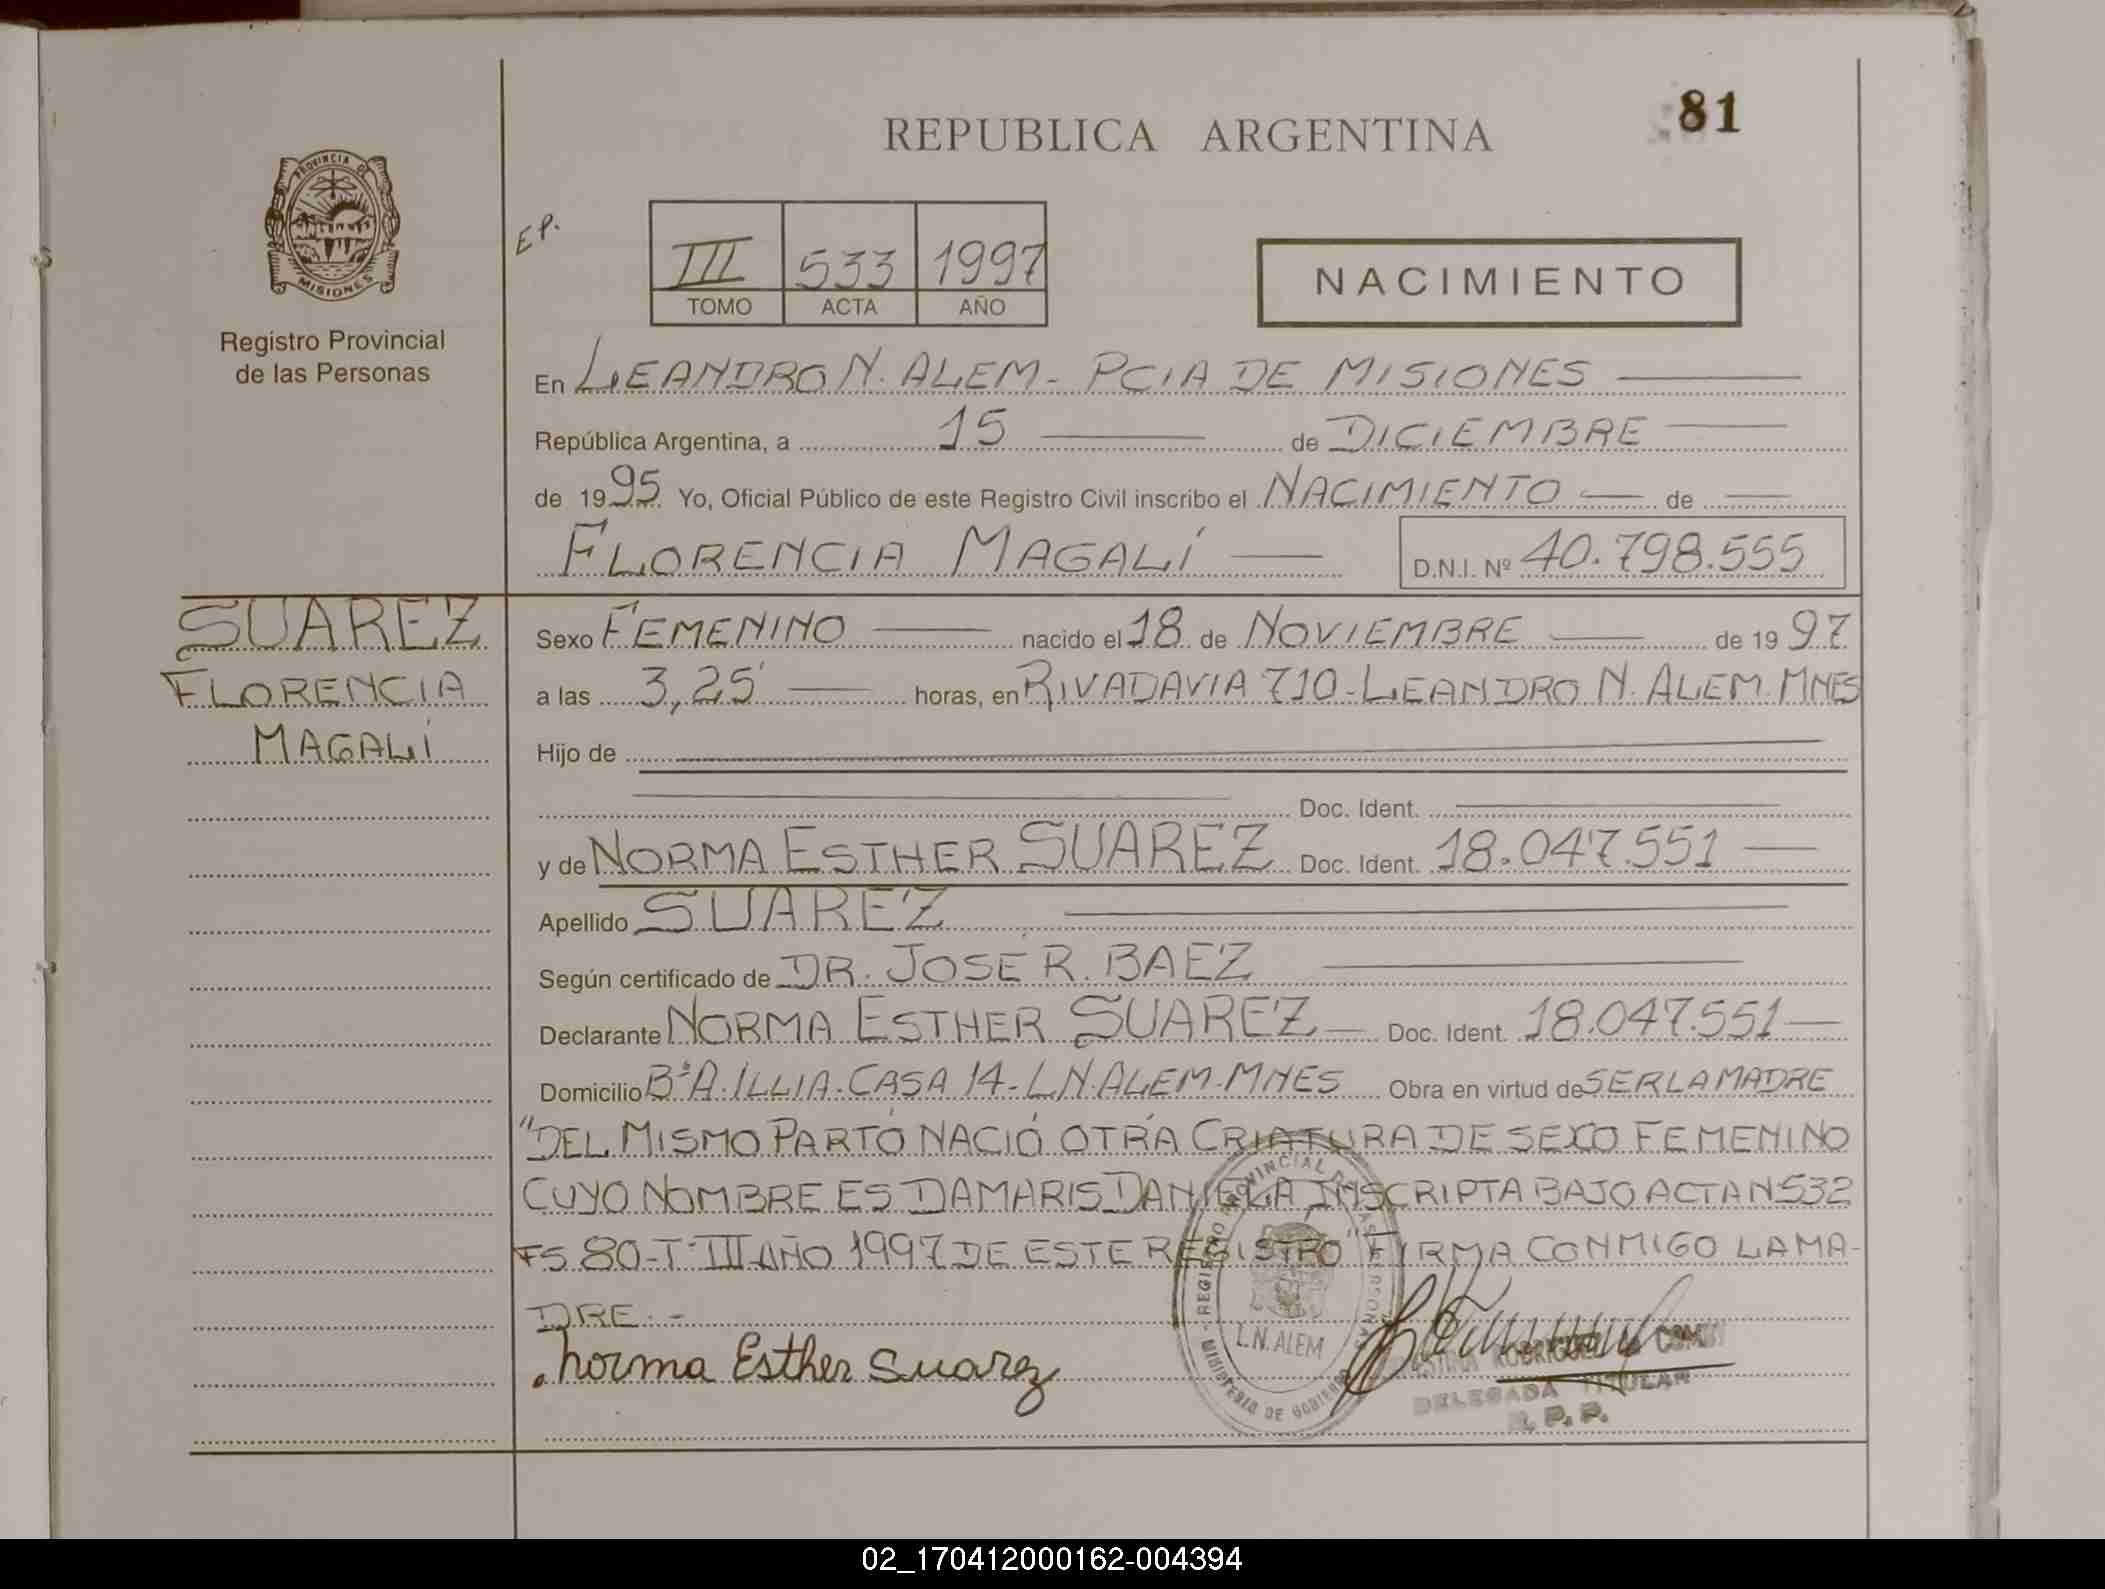 REPUBLICA ARGENTINA
81
PROVINCIA DE
MISIONES
Registro Provincial
de las Personas
E P.
III 533 1997
TOMO ACTA AÑO
NACIMIENTO
En LEANDRO N. ALEM - PCIA DE MISIONES
República Argentina, a 15 de DICIEMBRE
de 1995 Yo, Oficial Público de este Registro Civil inscribo el NACIMIENTO de
FLORENCIA MAGALÍ D.N.I. Nº 40.798.555
SUAREZ
FLORENCIA
MAGALÍ
Sexo FEMENINO nacido el 18 de NOVIEMBRE de 1997
a las 3,25' horas, en RIVADAVIA 710-LEANDRO N. ALEM. MNES
Hijo de
Doc. Ident.
y de NORMA ESTHER SUAREZ Doc. Ident. 18.047.551
Apellido SUAREZ
Según certificado de DR. JOSÉ R. BAEZ
Declarante NORMA ESTHER SUAREZ Doc. Ident. 18.047.551
Domicilio Bº A. ILLIA-CASA 14-L.N.ALEM-MNES Obra en virtud de SER LA MADRE
"DEL MISMO PARTO NACIÓ OTRA CRIATURA DE SEXO FEMENINO
CUYO NOMBRE ES DAMARIS DANIELA, INSCRIPTA BAJO ACTA N 532
FS 80-T-III AÑO 1997 DE ESTE REGISTRO" FIRMA CONMIGO LA MA-
DRE.-
Norma Esther Suarez
REGISTRO PROVINCIAL DE LAS PERSONAS
MINISTERIO DE GOBIERNO
L.N. ALEM
RODRIGUEZ
DELEGADA TITULAR
R. P. P.
02_170412000162-004394